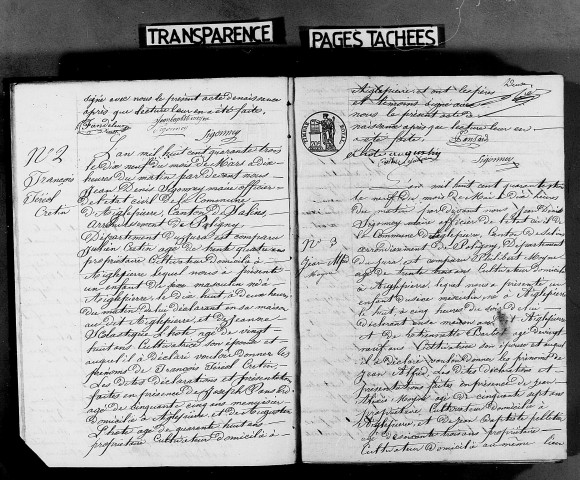 TRANSPARENCE
PAGES TACHEES
signé avec nous le présent acte de naissance
après que lecture leur en a été faite,
N° 2
François
Cretin
L'an mil huit cent quarante trois
le dix neuf du mois de Mars à dix
heures du matin par devant nous
Jean Denis maire officier
de l'état civil de la Commune
d'Aiglepierre, Canton de Salins
arrondissement de Poligny
Département du Jura est comparu
Julien Cretin agé de trente quatre ans
propriétaire Cultivateur Domicilié à
Aiglepierre lequel nous a présenté
un enfant du sexe masculin né à
Aiglepierre, le dix huit, à deux heures
du matin de lui déclarant en sa maison
au dit Aiglepierre et de Jeanne
agée de vingt
huit ans Cultivatrice son épouse et
auquel il a déclaré vouloir donner les
prénoms de François Cretin
Les dites déclarations et présentation
faites en présence de Joseph
agé de cinquante cinq ans
Domicilié à Aiglepierre et de Augustin
agé de quarante huit ans
propriétaire Cultivateur Domicilié à
Aiglepierre et ont les pères
et témoins signé avec
nous le présent acte de
naissance après que lecture leur en
a été faite
TIMBRE ROYAL
N° 3
Jean
L'an mil huit cent quarante trois
le neuf du mois de Mai à dix heures
du matin par devant nous Jean Denis
maire officier de l'état civil de
la Commune d'Aiglepierre, Canton de Salins
arrondissement de Poligny, Département
du Jura, est comparu
agé de trente trois ans Cultivateur Domicilié
à Aiglepierre, lequel nous a présenté un
enfant du sexe masculin né à Aiglepierre
le huit à cinq heures du soir de lui
déclarant en sa maison au dit Aiglepierre
agée de vingt
neuf ans Cultivatrice son épouse et auquel
il a déclaré vouloir donner les prénoms de
Jean Alfred. Les dites déclaration et
présentation faites en présence de Jean
agé de cinquante sept ans
propriétaire Cultivateur Domicilié à
Aiglepierre, et de Jean Baptiste
agé de soixante trois ans propriétaire
Cultivateur Domicilié au même lieu